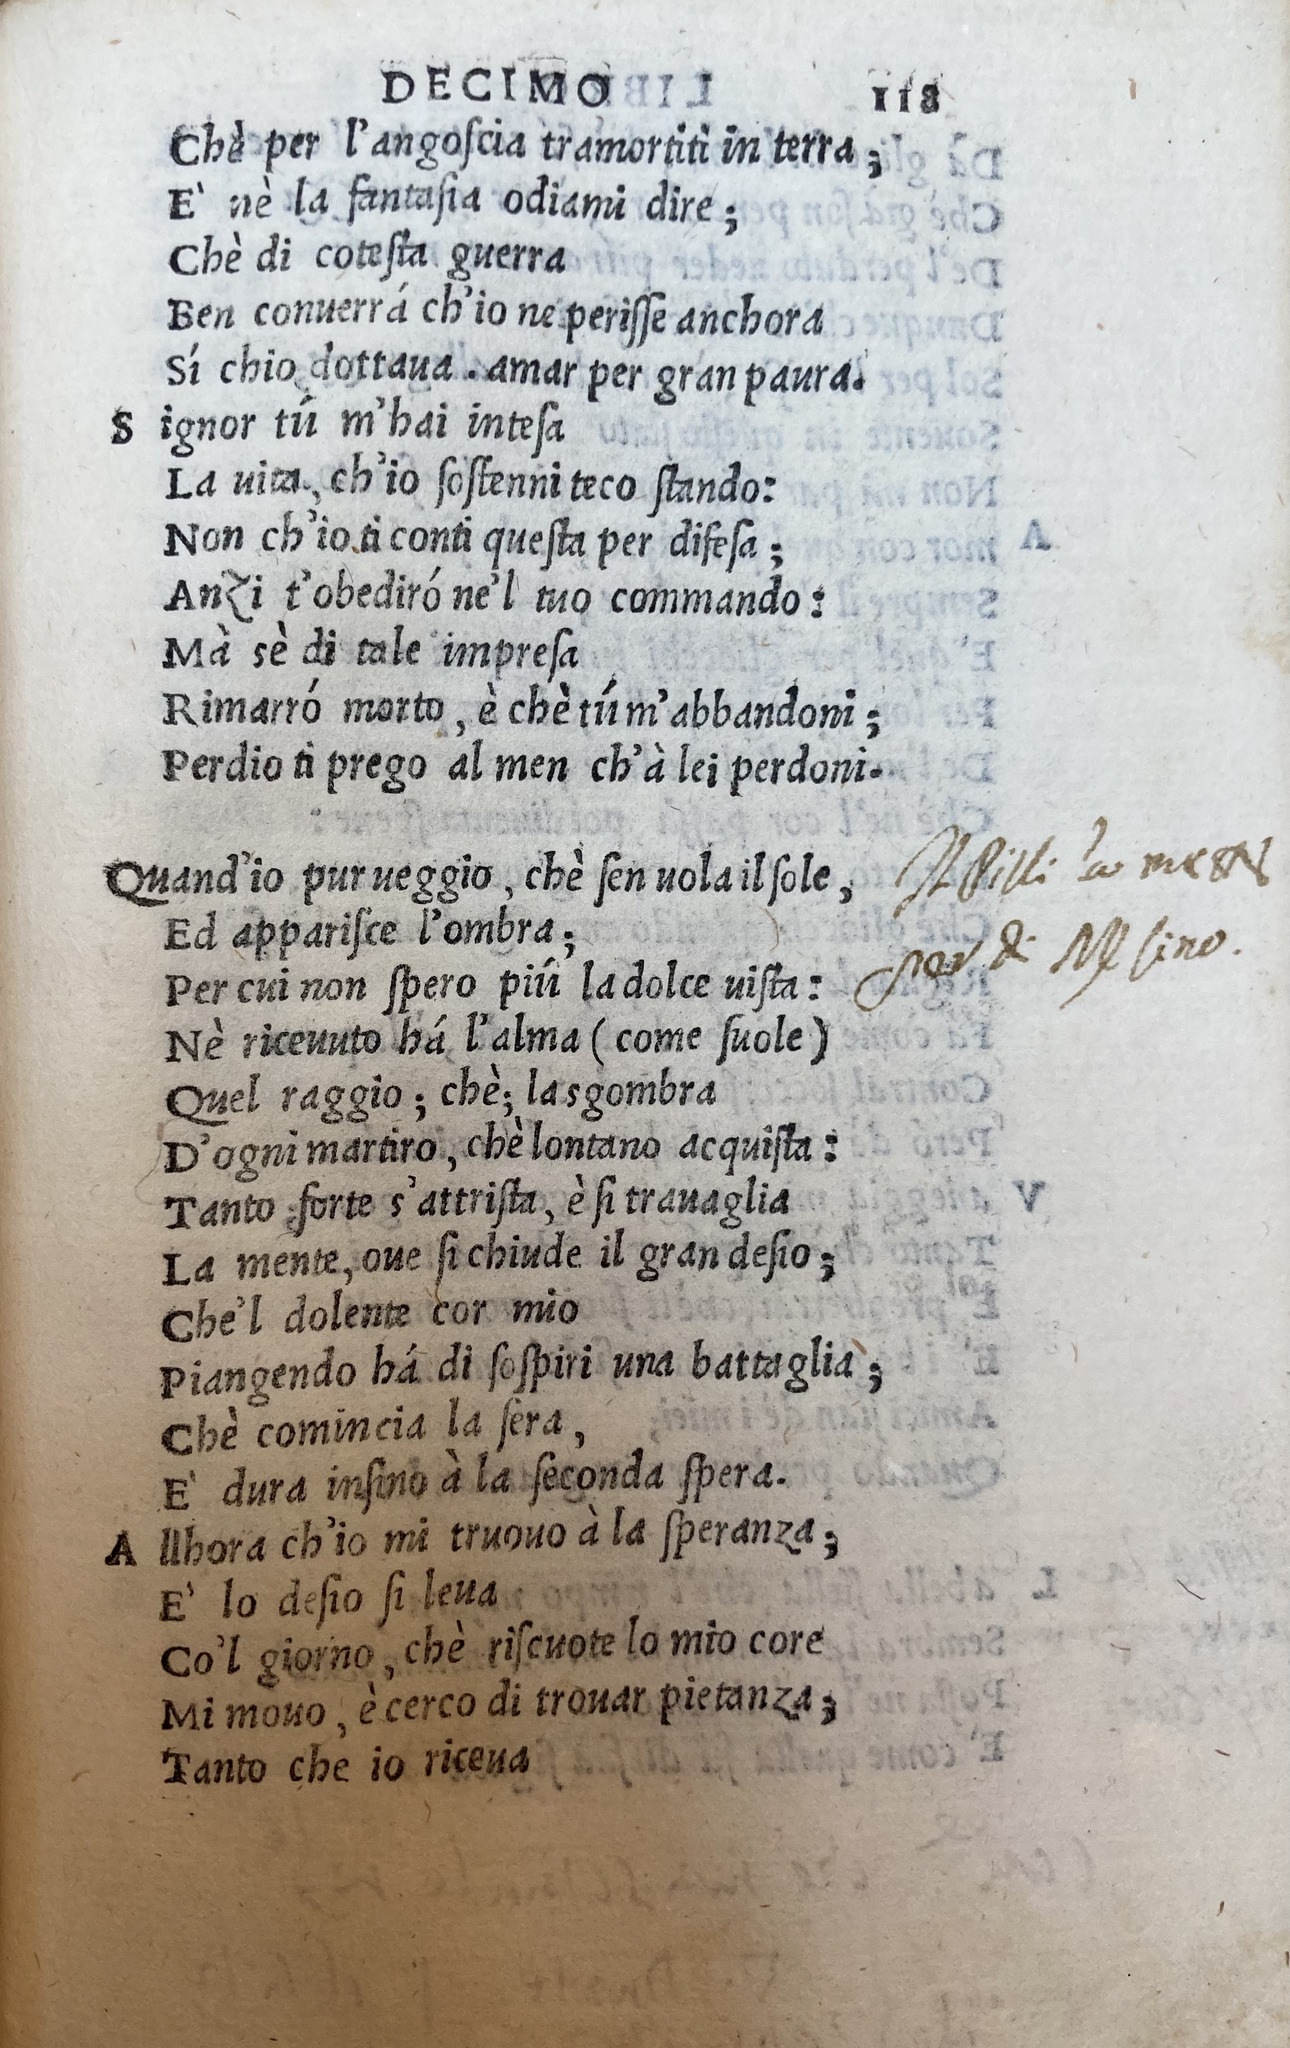 DECIMO 118
Chè per l'angoſcia tramortiti in terra;
E' nè la fantaſia odiami dire;
Chè di coteſta guerra
Ben conuerrá ch'io ne periſſe anchora
Sí chio dottaua. amar per gran paura.
S ignor tú m'hai inteſa
La uita, ch'io ſoſtenni teco ſtando:
Non ch'io ti conti queſta per difeſa;
Anzi t'obediró ne'l tuo commando:
Mà sè di tale impreſa
Rimarró morto, è chè tú m'abbandoni;
Perdio ti prego al men ch'à lei perdoni.
Quand'io pur ueggio, chè ſen uola il ſole,
Il Pilli la mette
Ed appariſce l'ombra;
per di M. Cino.
Per cui non ſpero piú la dolce uiſta:
Nè riceuuto há l'alma (come ſuole)
Quel raggio; chè; la sgombra
D'ogni martiro, chè lontano acquiſta:
Tanto forte s'attriſta, è ſi trauaglia
La mente, oue ſi chiude il gran deſio;
Che'l dolente cor mio
Piangendo há di ſoſpiri una battaglia;
Chè comincia la ſera,
E' dura inſino à la ſeconda ſpera.
A llhora ch'io mi truouo à la ſperanza;
E' lo deſio ſi leua
Co'l giorno, chè riſcuote lo mio core
Mi mouo, è cerco di trouar pietanza;
Tanto che io riceua